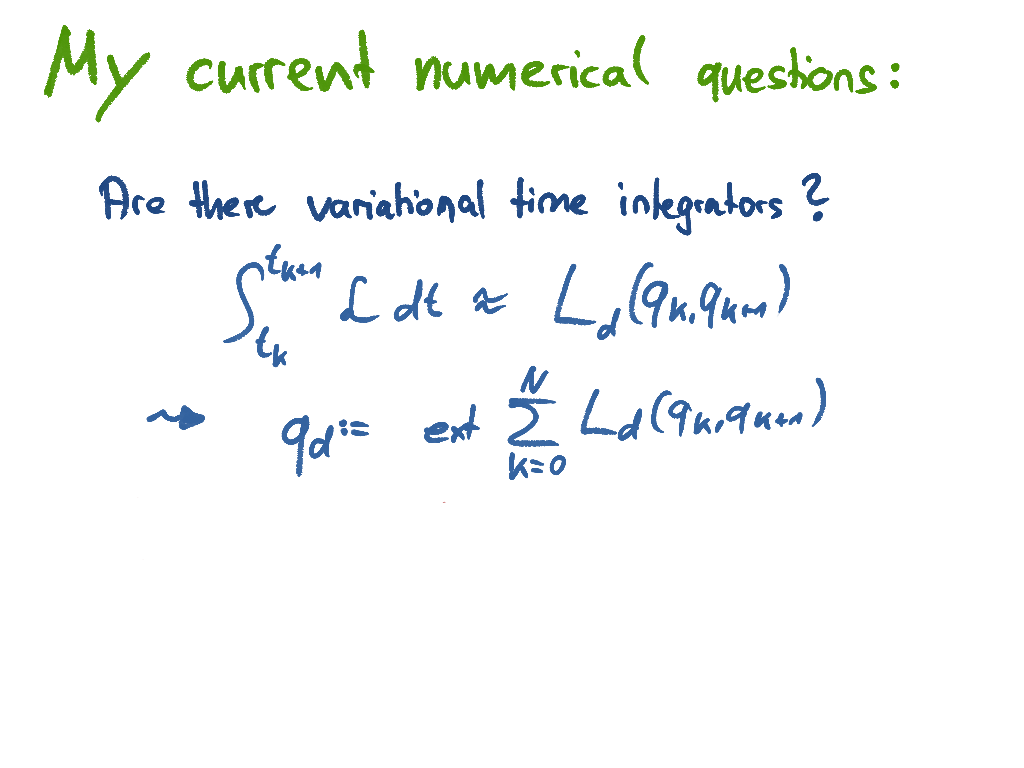 My current numerical questions:
Are there variational time integrators?
∫_{t_k}^{t_{k+1}} ℒ dt ≈ L_d(q_k, q_{k+1})
⇝ q_d := ext ∑_{k=0}^{N} L_d(q_k, q_{k+1})